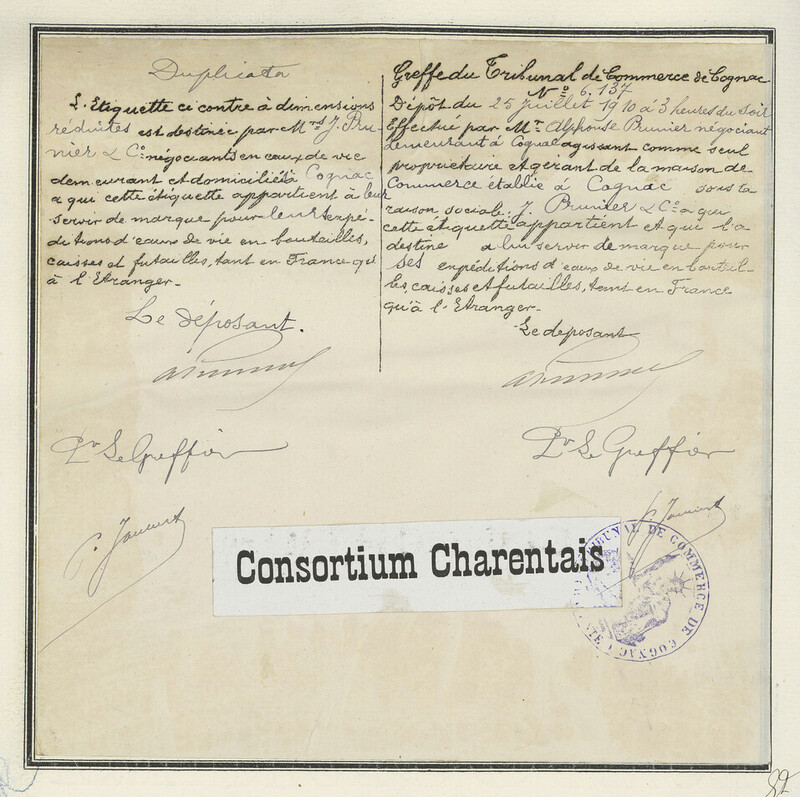 Duplicata
L'Etiquette ci contre à dimensions
réduites est destinée par Mrs J. Pru-
nier & Co négociants en eaux de vie
demeurant et domiciliés à Cognac
a qui cette étiquette appartient à leur
servir de marque pour leurs expé-
ditions d'eaux de vie en bouteilles,
caisses et futailles, tant en France qu'
à l'Etranger.-
Le déposant.
APrunier
Pr Le Greffier
Greffe du Tribunal de Commerce de Cognac
No 6,137
Dépôt du 25 Juillet 1910 à 3 heures du Soir
Effectué par Mr Alphonse Prunier négociant
demeurant à Cognac agissant comme seul
propriétaire et gérant de la maison de
Commerce établie à Cognac sous la
raison sociale: J. Prunier & Co a qui
cette étiquette appartient et qui l'a
destine a lui servir de marque pour
ses expéditions d'eaux de vie en bouteil-
les, caisses et futailles, tant en France
qu'à l'Etranger.-
Le déposant
APrunier
Pr Le Greffier
Consortium Charentais
TRIBUNAL DE COMMERCE DE COGNAC